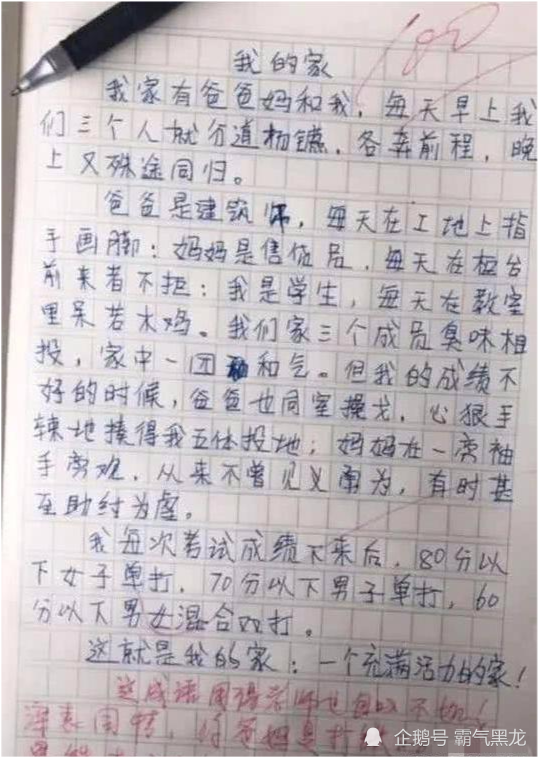 100
我的家
我家有爸爸妈和我，每天早上我
们三个人就分道杨镳，各奔前程，晚
上又殊途同归。
爸爸是建筑师，每天在工地上指
手画脚；妈妈是售货员，每天在柜台
前来者不拒；我是学生，每天在教室
里呆若木鸡。我们家三个成员臭味相
投，家中一团和气。但我的成绩不
好的时候，爸爸也同室操戈，心狠手
辣地揍得我五体投地；妈妈在一旁袖
手旁观，从来不曾见义勇为，有时甚
至助纣为虐。
我每次考试成绩下来后，80分以
下女子单打，70分以下男子单打，60
分以下男女混合双打。
这就是我的家：一个充满活力的家！
这成语用得老师也自叹不如！
你爸妈是
企鹅号 霸气黑龙